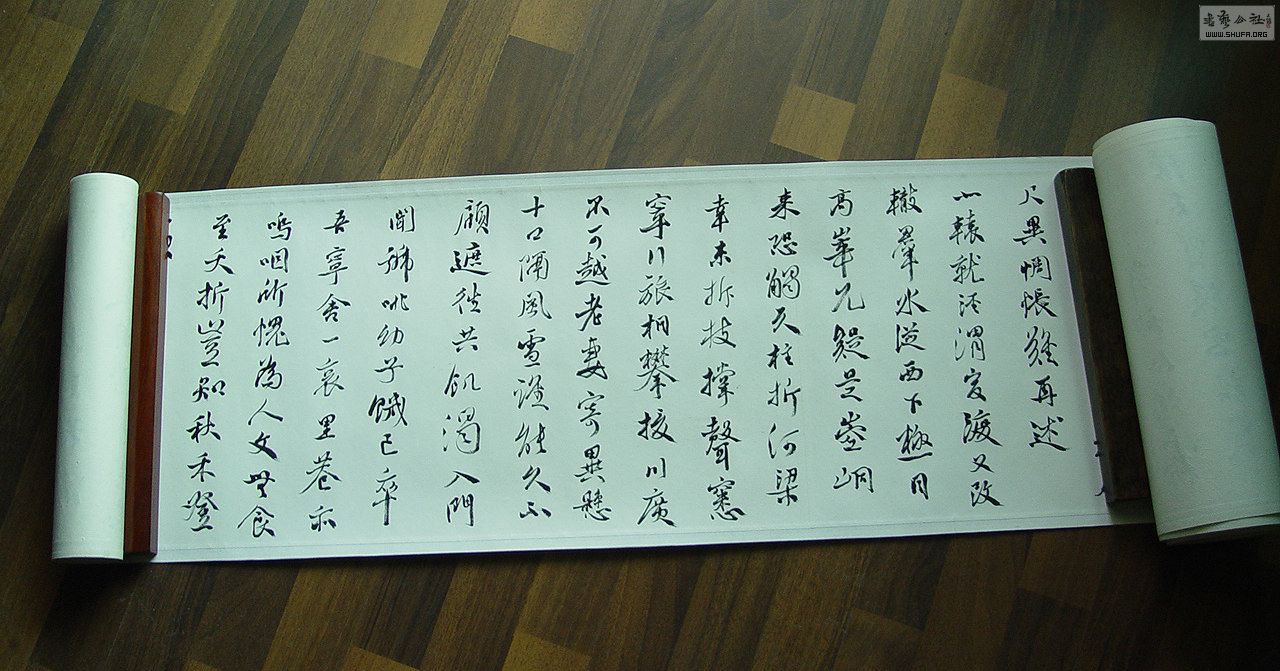 尺異惆悵難再述
北轅就涇渭官渡又改
轍羣水從西下極目
高崒兀疑是崆峒
來恐觸天柱折河梁
幸未拆枝撐聲窸
窣行旅相攀援川廣
不可越老妻寄異縣
十口隔風雪誰能久不
顧遮往共飢渴入門
聞號咷幼子餓已卒
吾寧舍一哀里巷亦
嗚咽所愧為人父無食
至夭折豈知秋禾登
書藝公社
WWW.SHUFA.ORG